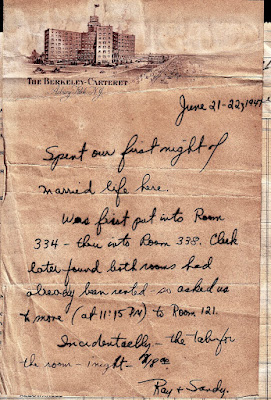 THE BERKELEY-CARTERET
Asbury Park, N.J.
June 21-22, 1947
Spent our first night of
married life here.
Was first put into Room
334 - then into Room 338. Clerk
later found both rooms had
already been rented - so asked us
to move (at 11:15 PM) to Room 121.
Incidentally - the tab for
the room - 1 night -
Ray + Sandy.